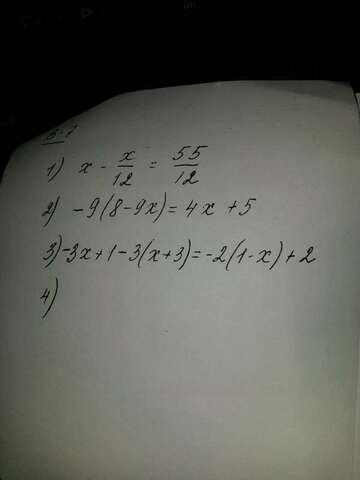 1) x - x/12 = 55/12
2) -9(8-9x)=4x+5
3) -3x+1-3(x+3)=-2(1-x)+2
4)